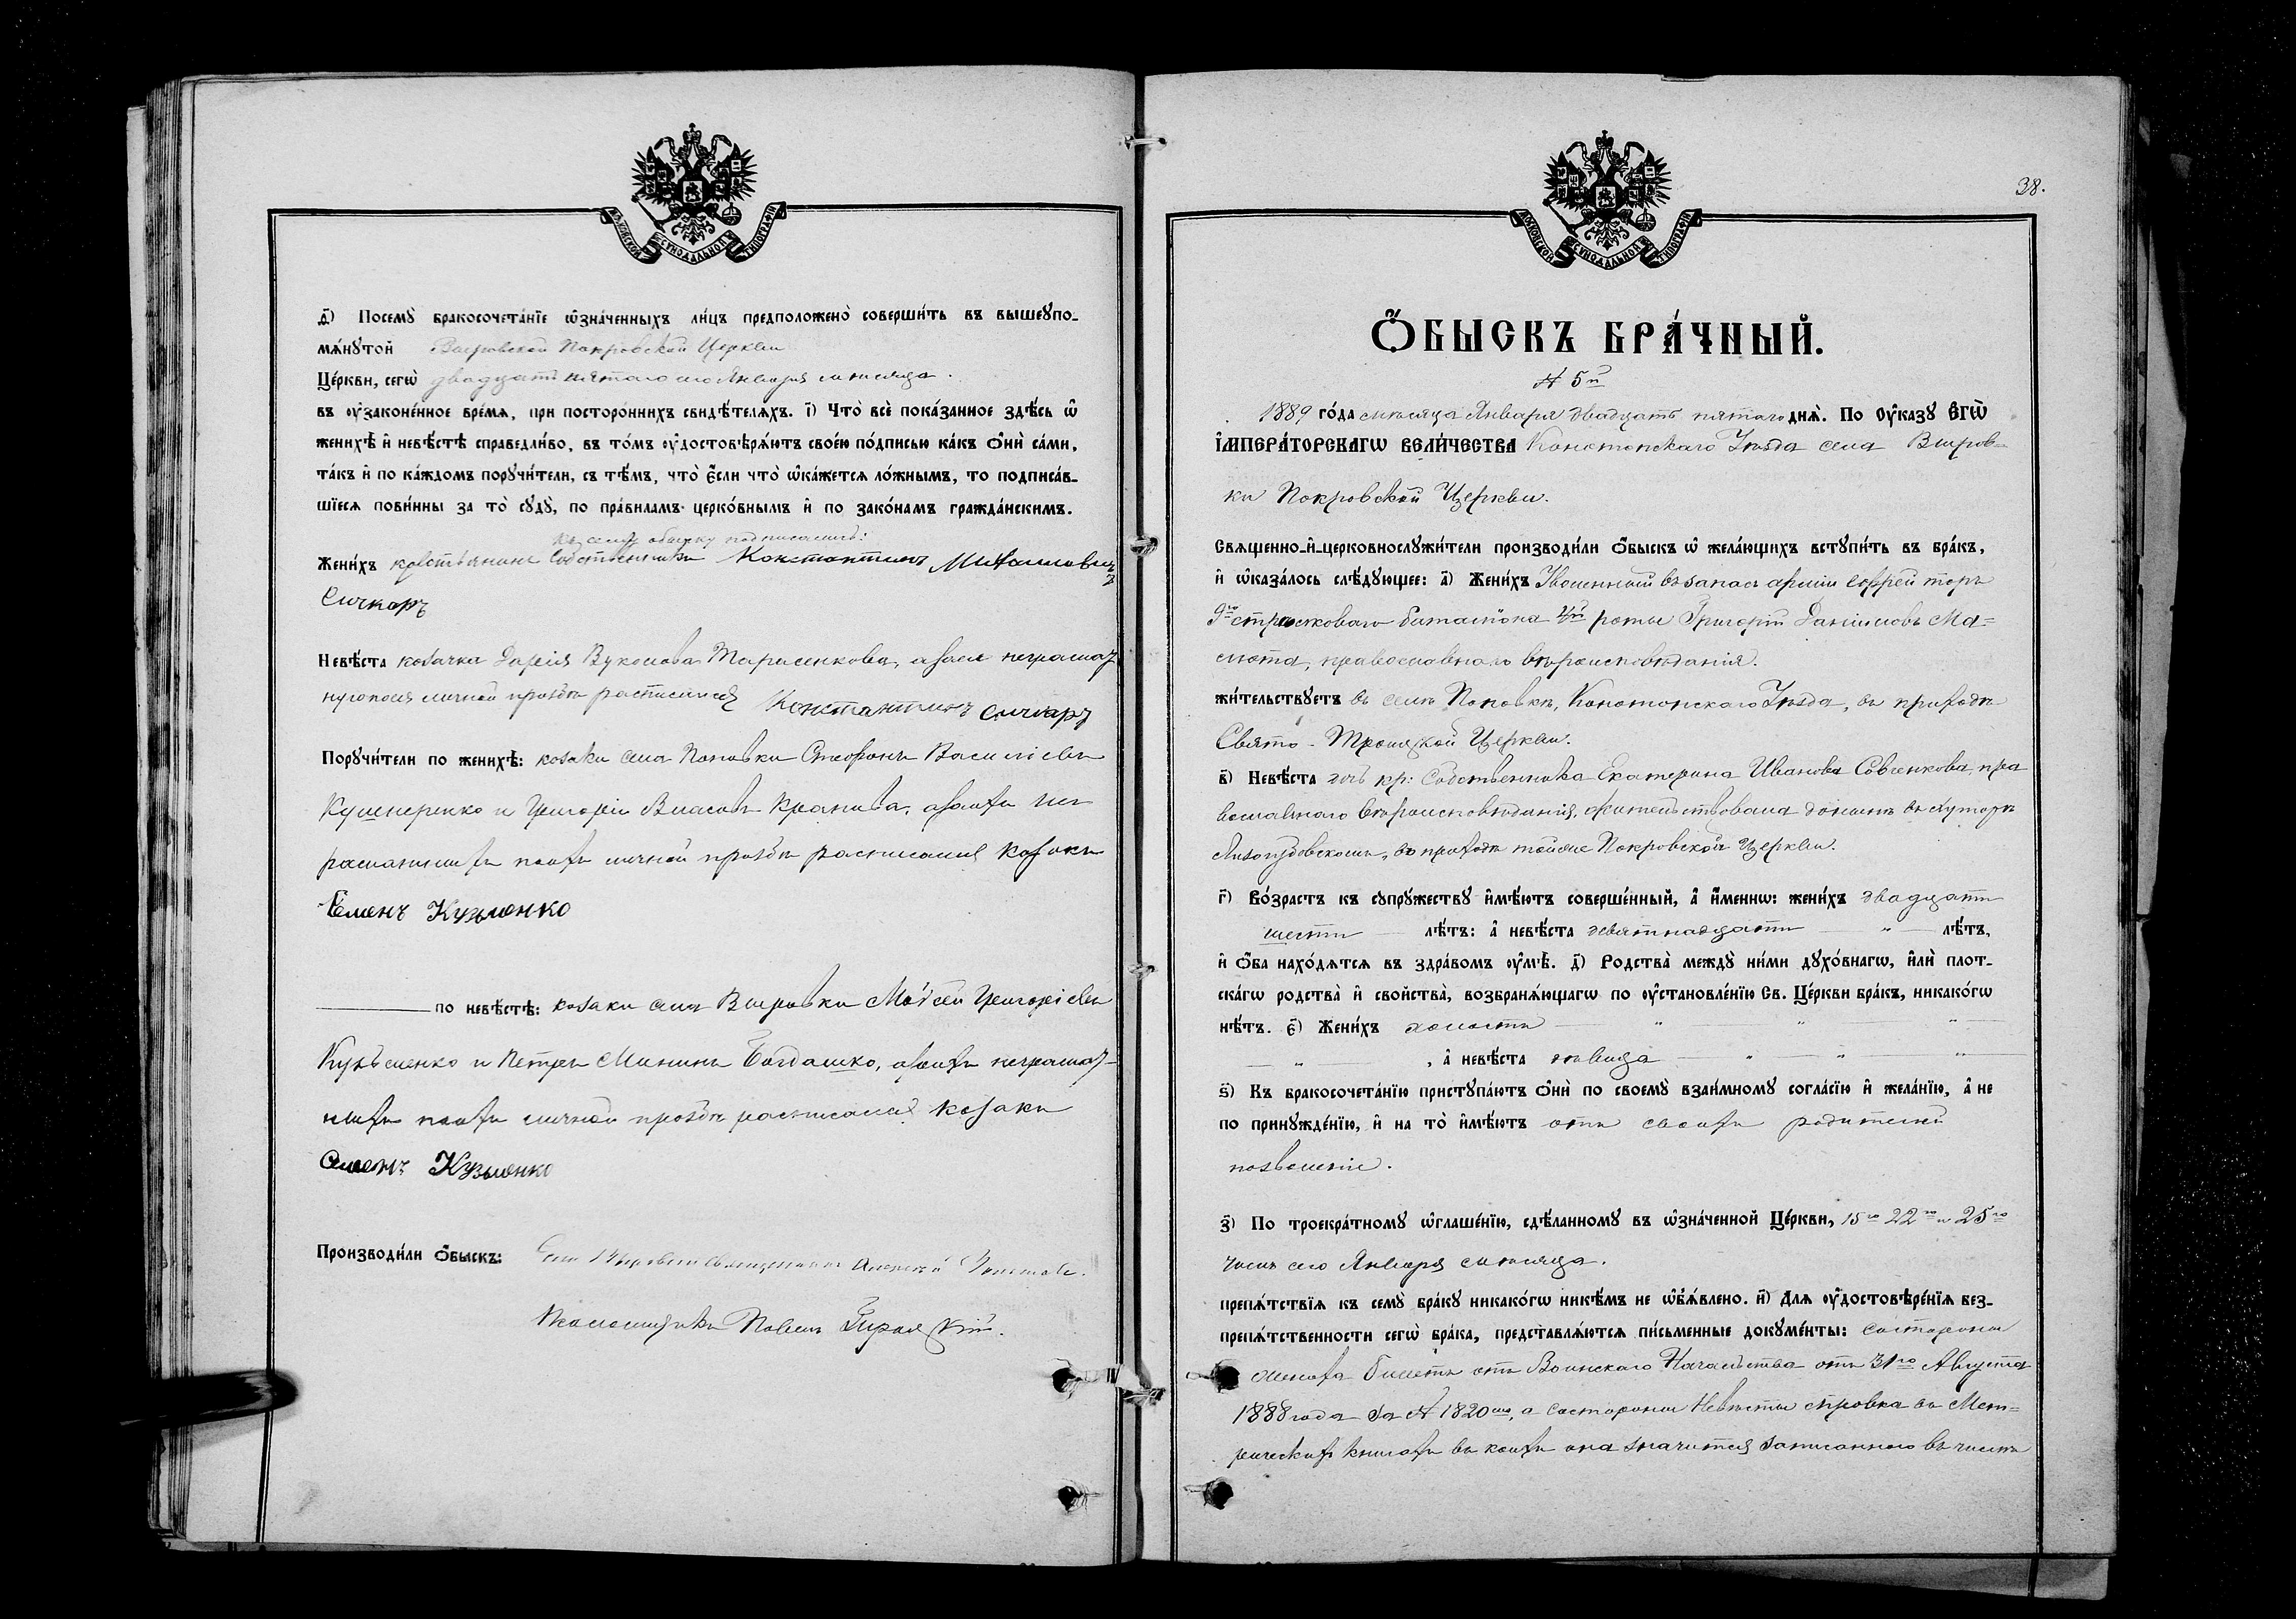 МОСКОВСКОЙ СУНОДАЛЬНОЙ ТИПОГРАФІИ
д҃) Посемꙋ̀ бракосочета́нїе ѡ҆зна́ченныхъ ли́цъ предположено̀ соверши́ть въ вышеꙋпо-
мѧ́нꙋтой Вировской Покровской Церкви
Це́ркви, сегѡ̀ двадцать пятаго сего Января месяца.
въ ᲂу҆законе́нное вре́мѧ, при посторо́ннихъ свидѣ́телѧхъ. і҃) Что̀ всѐ пока́занное здѣ́сь ѡ҆
женихѣ̀ и҆ невѣ́стѣ справедли́во, въ то́мъ ᲂу҆достовѣрѧ́ютъ свое́ю по́дписью ка́къ ѻ҆нѝ са́ми,
та́къ и҆ по ка́ждомъ порꙋчи́тели, съ тѣ́мъ, что̀ є҆́сли что̀ ѡ҆ка́жется ло́жнымъ, то подписа́в-
шїеся пови́нны за то̀ сꙋдꙋ̀, по пра́виламъ церко́внымъ и҆ по зако́намъ гражда́нскимъ.
Къ сему обыску подписались:
Жени́хъ крестьянинъ собственникъ Константинъ Михайловичъ
Сичкаръ
Невѣ́ста козачка Дарія Вуколова Тарасенкова, а за ея неграмат
ную по ея личной прозьбѣ росписался Константинъ Сичкаръ
Порꙋчи́тели по женихѣ̀: козаки села Поповки Стефанъ Васильевъ
Кушнеренко и Григорій Власовъ Крапива, а за ихъ не
граматныхъ по ихъ личной прозьбѣ росписался козакъ
Семенъ Кузьменко
по невѣ́стѣ: козаки села Вировки Мойсей Григоріевъ
Кузьменко и Петръ Мининъ Богдашко, а за ихъ неграмат-
ныхъ по ихъ личной прозьбѣ росписался козакъ
Семенъ Кузьменко
Производи́ли ѻ҆́быскъ: Села Вировки Священникъ Алексей
Псаломщикъ Павелъ
38.
МОСКОВСКОЙ СУНОДАЛЬНОЙ ТИПОГРАФІИ
Ѻ҆́БЫСКЪ БРА́ЧНЫЙ.
№ 5й
1889 го́да месяца Января двадцать пятаго днѧ̀. По Оу҆ка́зꙋ Є҆гѡ̀
І҆мпера́торскагѡ Вели́чества Конотопскаго Уезда села Виров-
ки Покровской Церкви.
Свѧще́нно-и҆-церковнослꙋжи́тели производи́ли ѻ҆́быскъ ѡ҆ жела́ющихъ встꙋпи́ть въ бра́къ,
и҆ ѡ҆каза́лось слѣ́дꙋющее: а҃) Жени́хъ Уволенный въ запасъ арміи Еффрейторъ
9го стрѣлковаго баталіона 4й роты Григорій Даніиловъ Ма-
слюта, православнаго вѣроисповѣданія.
жи́тельствꙋетъ въ селѣ Поповкѣ, Конотопскаго Уѣзда, въ приходѣ
Свято-Троицкой Церкви.
в҃) Невѣ́ста дочь кр: Собственника Екатерина Иванова Совенкова, пра
вославнаго вѣроисповѣданія, жительствовала донынѣ въ хуторѣ
въ приходѣ тойже Покровской Церкви.
г҃) Во́зрастъ къ сꙋпрꙋ́жествꙋ и҆мѣ́ютъ соверше́нный, а҆ и҆́меннѡ: жени́хъ двадцати
шести лѣ́тъ: а҆ невѣ́ста девятнадцати " лѣ́тъ,
и҆ ѻ҆́ба нахо́дѧтся въ здра́вомъ ᲂу҆мѣ̀. д҃) Родства̀ междꙋ̀ ни́ми дꙋхо́внагѡ, и҆лѝ плот-
ска́гѡ родства̀ и҆ свойства̀, возбранѧ́ющагѡ по ᲂу҆становле́нїю Св. Це́ркви бра́къ, никако́гѡ
нѣ́тъ. є҃) Жени́хъ холостъ " " "
" , а҆ невѣ́ста дѣвица " " "
ѕ҃) Къ бракосочета́нїю пристꙋпа́ютъ ѻ҆нѝ по своемꙋ̀ взаи́мномꙋ согла́сїю и҆ жела́нїю, а҆ не
по принꙋжде́нїю, и҆ на то̀ и҆мѣ́ютъ отъ своихъ родителей
позволеніе.
з҃) По троекра́тномꙋ ѡ҆глаше́нїю, сдѣ́ланномꙋ въ ѡ҆зна́ченной Це́ркви, 15го 22го и 25го
числъ сего Января месяца.
препѧ́тствїѧ къ семꙋ̀ бра́кꙋ никако́гѡ никѣ́мъ не ѡ҆б̾ѧ́влено. и҃) Для ᲂу҆достовѣре́нїѧ без-
препѧ́тственности сегѡ̀ бра́ка, представлѧ́ются пи́сьменные докꙋме́нты: со стороны
жениха билетъ отъ Воинскаго Начальства отъ 31го Августа
1888 года за № 1820мъ, а со стороны Невѣсты справка въ Мет-
рическихъ книгахъ въ коихъ она значится записанною въ числѣ